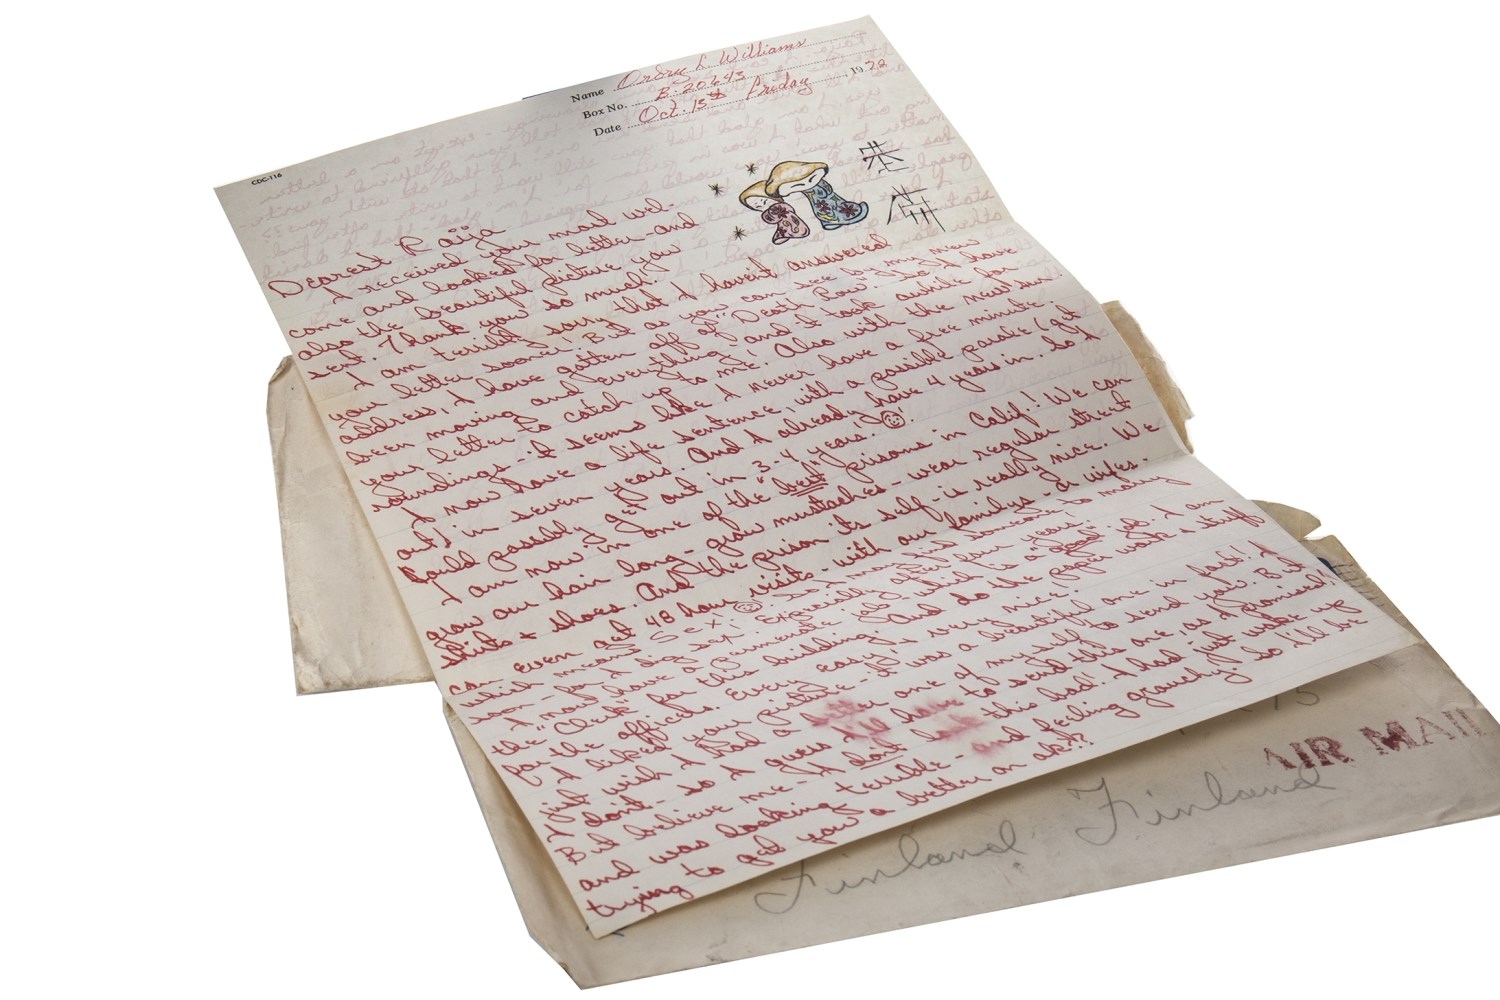 Name Ordry L Williams
Box No. B-20643
Date Oct. 13th Friday 1972
CDC-116
Dearest Raija
I received your most wel-
come and looked for letter-and
also the beautiful picture you
sent. Thank you so much!
I am terribly sorry that I haven't answered
your letter sooner! But as you can see by my new
address, I have gotten off of "Death Row." So I have
been moving and everything, and it took awhile for
your letter to catch up to me! Also with the new sur-
roundings-it seems like I never have a free minute!
I now have a life sentence, with a possible parole (get
out) in seven years. And I already have 4 years in. So I
could possibly get out in 3-4 years!
I am now in one of the "best" prisons in Calif.! We can
grow our hair long-grow mustaches-wear regular street
shirts + shoes. And the prison its self-is really nice. We
can even get 48 hour visits-with our families-or wifes.
which means Sex! So I may find someone to marry
soon-for I dig sex. Especially after four years!
I now have a permanent job which is a "good" job. I am
the "Clerk" for this building. And do the paper work & stuff
for the officers. Every easy, very nice.
I liked your picture-it was a beautiful one in fact! I
just wish I had a better one of myself to send you. But
I don't-so I guess I'll have to send this one, as I promised!
But believe me-I don't look this bad! I had just woke up
and was looking terrible-and feeling grouchy. So I'll be
trying to get you a better on ok??
75
AIR MAIL
Finland Finland